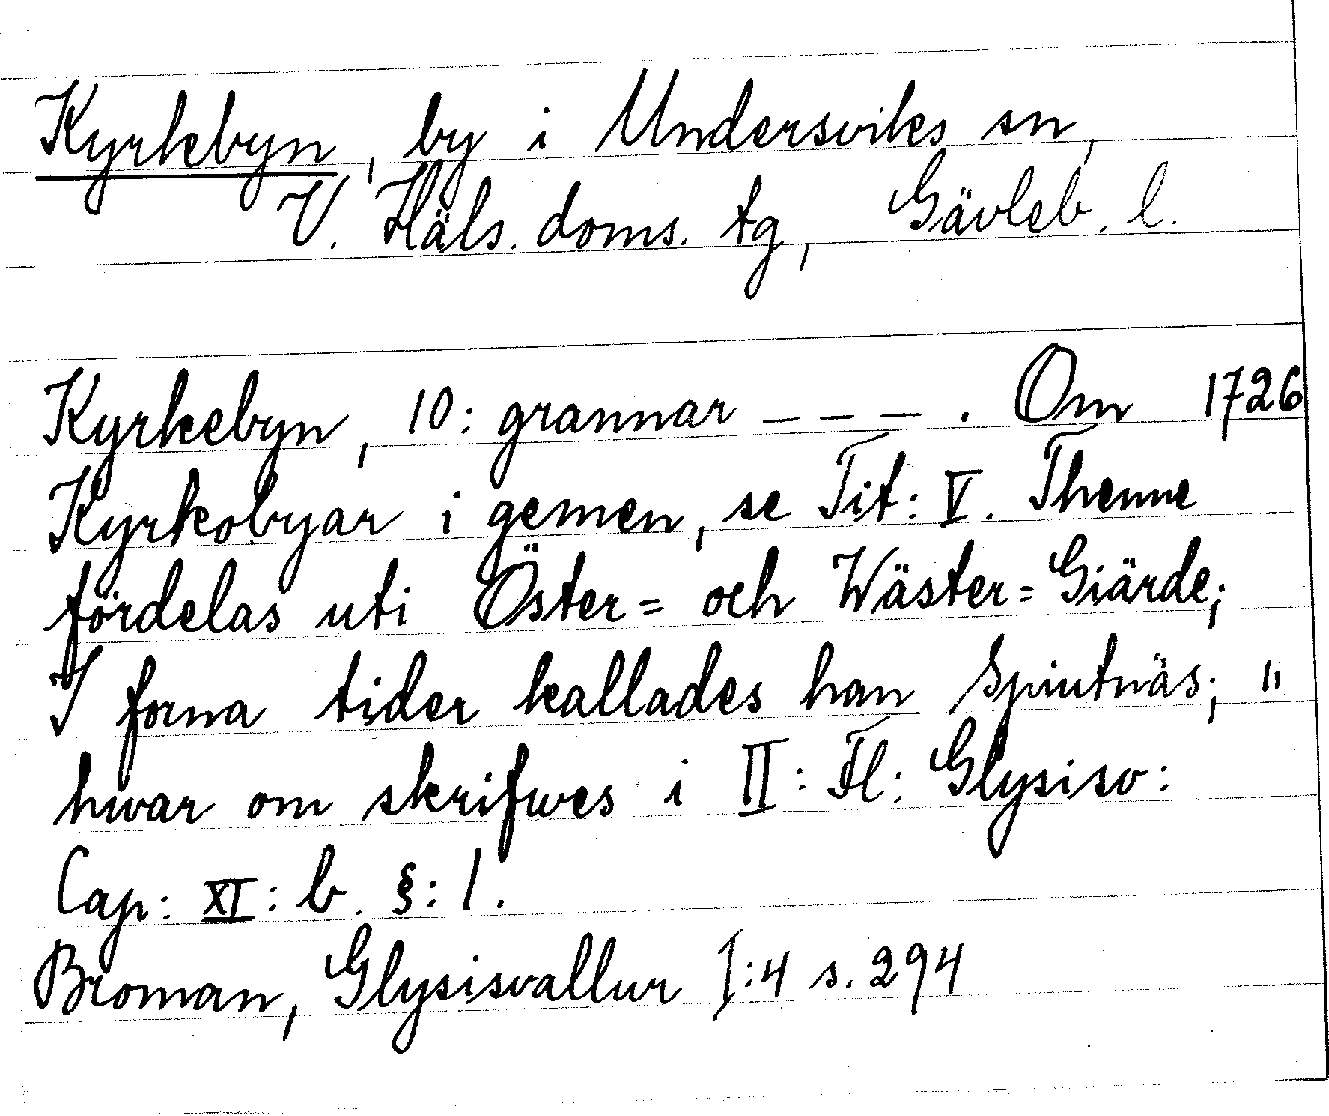 Kyrkebyn, by i Undersviks sn,
V. Häls. doms. tg, Gävleb. l.
Kyrkebyn, 10: grannar – – – . Om 1726
Kyrkobyar i gemen, se Tit: V. Thenne
fördelas uti Öster= och Wäster= Giärde;
I forna tider kallades han Spiutnäs; "
hwar om skrifwes i II: Fl: Glysisv:
Cap: XI: b. §: 1.
Broman, Glysisvallur I:4 s. 294